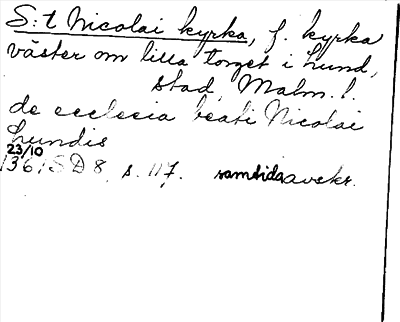 S:t Nicolai kyrka, f. kyrka
väster om lilla torget i Lund,
stad, Malm. l.
de ecclecia beati Nicolai
Lundis
23/10
1361 SD 8, s. 117. samtida avskr.